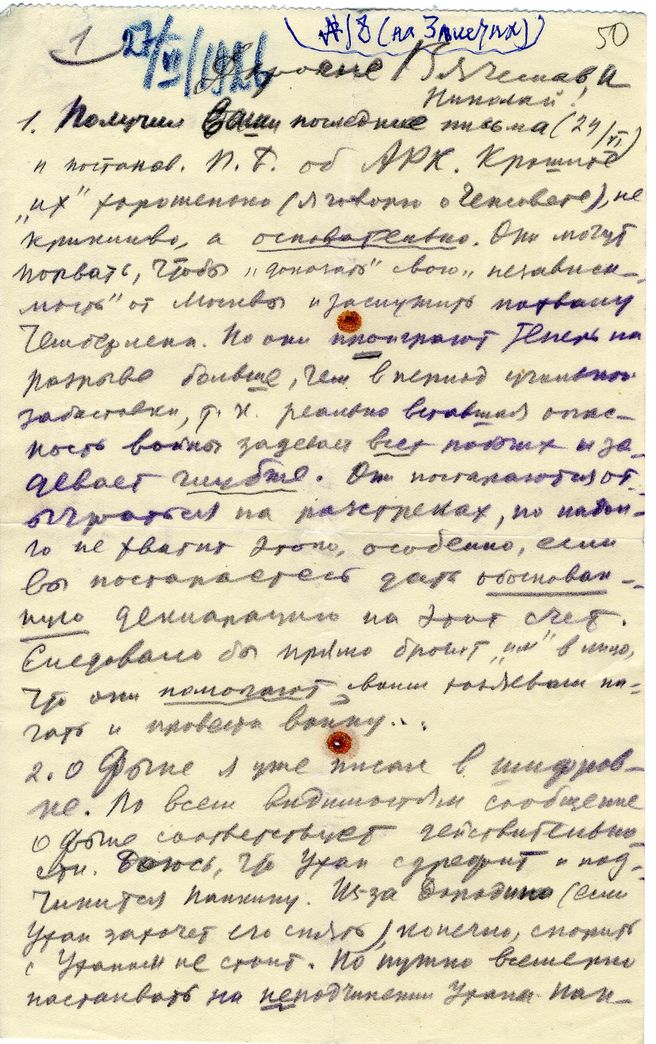 1
27/VI/1926
#18 (на 3 листах)
50
Дорогие Вячеслав и
Николай!
1. Получил Ваши последние письма (24/VI)
и постанов. П.Б. об АРК. Кройте
„их" хорошенько (я говорю о Генсовете), не
крикливо, а основательно. Они могут
порвать, чтобы „доказать" свою „независи-
мость" от Москвы и заслужить похвалу
Чемберлена. Но они проиграют теперь на
разрыве больше, чем в период угольной
забастовки, т. к. реально вставшая опас-
ность войны задевает всех рабочих и за-
девает глубже. Они постараются от-
ыграться на расстрелах, но надол-
го не хватит этого, особенно, если
вы постараетесь дать обоснован-
ную декларацию на этот счет.
Следовало бы прямо бросить „им" в лицо,
что они помогают своим хозяевам на-
чать и провести войну...
2. О Фыне я уже писал в шифров-
ке. По всем видимостям сообщение
о Фыне соответствует действительно-
сти. Боюсь, что Ухан сдрефит и под-
чинится Нанкину. Из-за Бородина (если
Ухан захочет его снять), конечно, спорить
с Уханом не стоит. Но нужно всемерно
настаивать на неподчинении Ухана Нан-